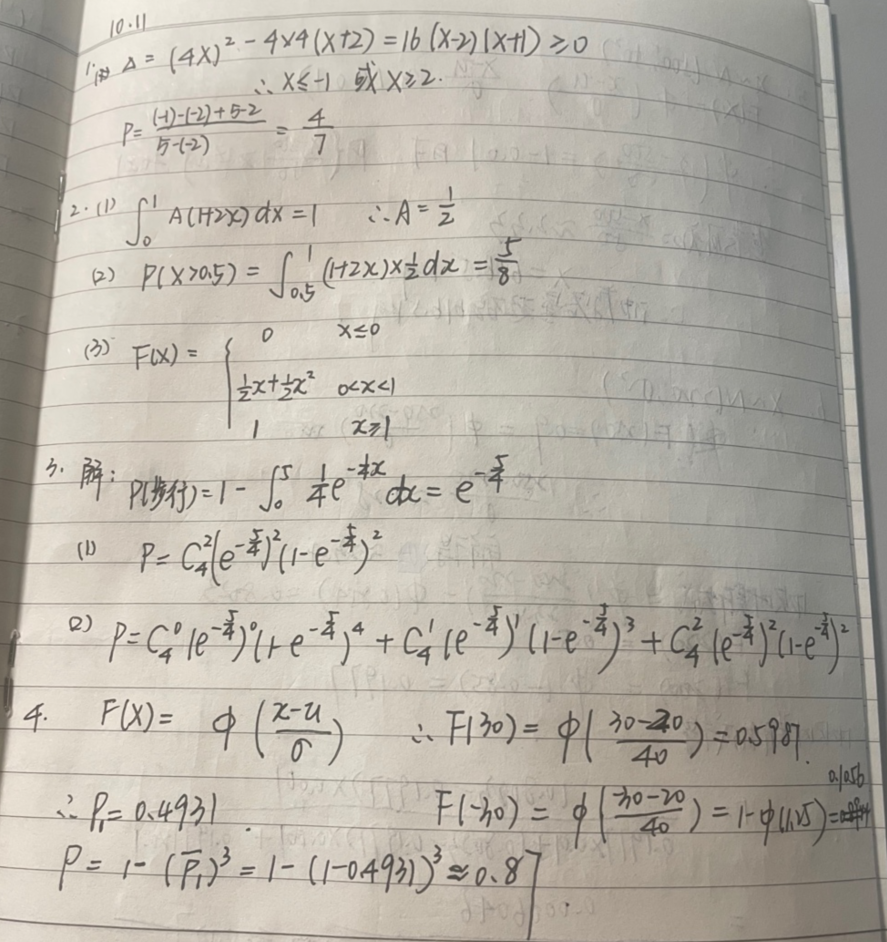 10.11
1. Δ = (4X)² - 4×4(X+2) = 16(X-2)(X+1) ≥ 0
∴ X≤-1 或 X≥2.
P = \frac{(-1)-(-2)+5-2}{5-(-2)} = \frac{4}{7}
2. (1) ∫₀¹ A(1+2x)dx = 1 ∴ A = \frac{1}{2}
(2) P(X>0.5) = ∫_{0.5}^{1} (1+2x)×\frac{1}{2}dx = \frac{5}{8}
(3) F(X) = { 0 x≤0
\frac{1}{2}x+\frac{1}{2}x² 0<x<1
1 x≥1
3. 解: P(步行) = 1 - ∫₀⁵ \frac{1}{4}e^{-\frac{1}{4}x} dx = e^{-\frac{5}{4}}
(1) P = C_4^2(e^{-\frac{5}{4}})²(1-e^{-\frac{5}{4}})²
(2) P = C_4^0(e^{-\frac{5}{4}})^0(1-e^{-\frac{5}{4}})^4 + C_4^1(e^{-\frac{5}{4}})^1(1-e^{-\frac{5}{4}})^3 + C_4^2(e^{-\frac{5}{4}})²(1-e^{-\frac{5}{4}})²
4. F(X) = φ(\frac{x-u}{σ}) ∴ F(30) = φ(\frac{30-20}{40}) = 0.5987.
∴ P₁ = 0.4931. F(-30) = φ(\frac{-30-20}{40}) = 1-φ(1.25) = 0.1056
P = 1-(\overline{P₁})³ = 1-(1-0.4931)³ ≈ 0.87.